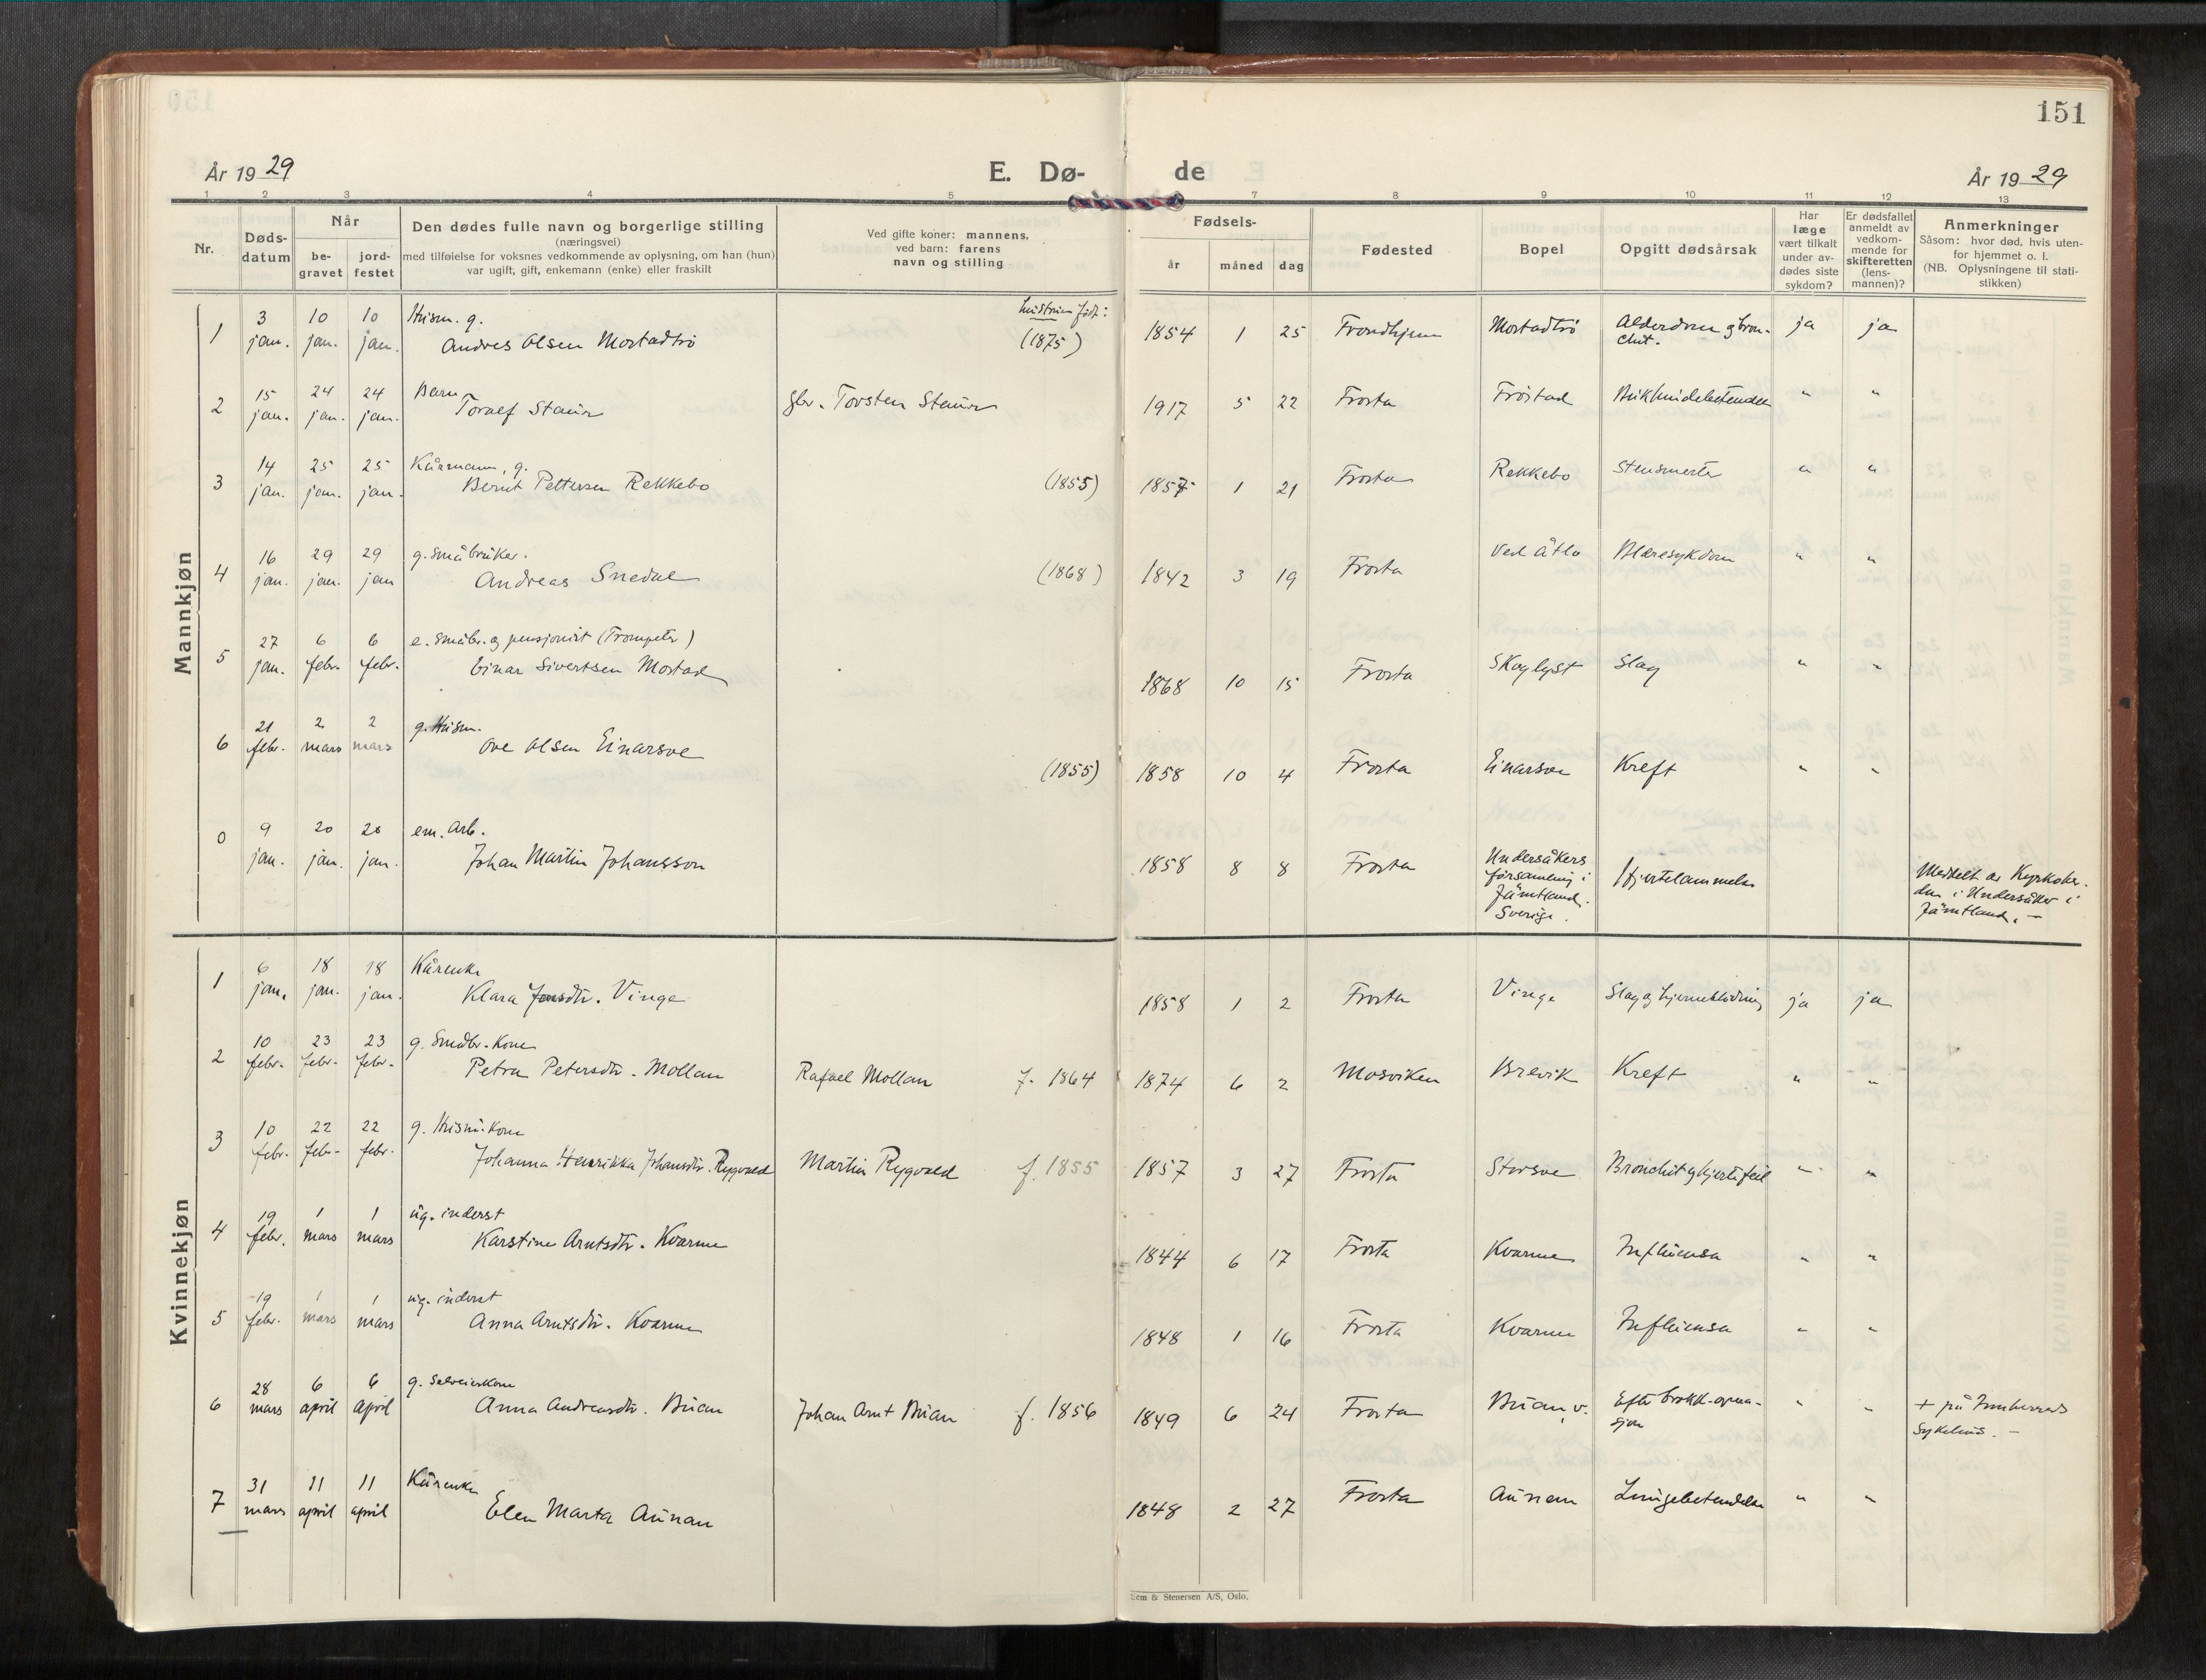 150
151
År 1929
E. Dø-
de
År 1929
1 2 3 4 5 7 8 9 10 11 12 13
Nr.
Døds-
datum
Når
be-
gravet
jord-
festet
Den dødes fulle navn og borgerlige stilling
(næringsvei)
med tilføielse for voksnes vedkommende av oplysning, om han (hun)
var ugift, gift, enkemann (enke) eller fraskilt
Ved gifte koner: mannens,
ved barn: farens
navn og stilling
Fødsels-
år
måned
dag
Fødested
Bopel
Opgitt dødsårsak
Har
læge
vært tilkalt
under av-
dødes siste
sykdom?
Er dødsfallet
anmeldt av
vedkom-
mende for
skifteretten
(lens-
mannen)?
Anmerkninger
Såsom: hvor død, hvis uten-
for hjemmet o. l.
(NB. Oplysningene til stati-
stikken)
Mannkjøn
hustruen født:
3 10 10 Husm. g.
1 jan. jan. jan. Andres Olsen Mostadtrö (1875) 1854 1 25 Trondhjem Mostadtrö Alderdom og bron-
chit. ja ja
15 24 24 Barn
2 jan. jan. jan. Toralf Staur gbr. Torsten Staur 1917 5 22 Frosta Fröstad Bukhindebetendelse " "
14 25 25 Kårmann, g.
3 jan. jan. jan. Bernt Pettersen Rekkebo (1855) 1857 1 21 Frosta Rekkebo Stensmerter " "
16 29 29 g. småbruker.
4 jan. jan. jan Andreas Snedal (1868) 1842 3 19 Frosta Ved Åtlo Blæresykdom " "
27 6 6 e. småbr. og pensjonist (Trompeter)
5 jan. febr. febr. Einar Sivertsen Mostad 1868 10 15 Frosta Skoglyst Slag " "
21 2 2 g. Husm.
6 febr. mars mars Ove Olsen Einarsve (1855) 1858 10 4 Frosta Einarsve Kreft " "
9 20 20 em. arb.
0 jan. jan. jan. Johan Martin Johansson 1858 8 8 Frosta Undersåkers
församling i
Jämtland.
Sverige. Hjertelammelse Meddelt av Kyrkoher-
den i Undersåker i
Jämtland. -
Kvinnekjøn
6 18 18 Kårenke
1 jan. jan. jan. Klara Jonsdtr. Vinge 1858 1 2 Frosta Vinge Slag og hjerneblödning ja ja
10 23 23 g. Småbr. kone
2 febr. febr. febr. Petra Petersdtr. Mollan Rafael Mollan f. 1864 1874 6 2 Mosviken Brevik Kreft " "
10 22 22 g. Husm. kone
3 febr. febr. febr. Johanna Henrikka Johansdtr. Rygvold Martin Rygvold f. 1855 1857 3 27 Frosta Storsve Bronchit og hjertefeil " "
19 1 1 ug. inderst
4 febr. mars mars Karstine Arntsdtr. Kvarme 1844 6 17 Frosta Kvarme Influensa " "
19 1 1 ug. inderst
5 febr. mars mars Anna Arntsdtr. Kvarme 1848 1 16 Frosta Kvarme Influensa " "
28 6 6 g. selveierkone
6 mars april april Anna Andreasdtr. Buan Johan Arnt Buan f. 1856 1849 6 24 Frosta Buan v. Efter brokk-opera-
sjon " " + på Innherreds
Sykehus. -
31 11 11 Kårenke
7 mars april april Elen Marta Aunan 1848 2 27 Frosta Aunan Lungebetendelse " "
Sem & Stenersen A/S, Oslo.